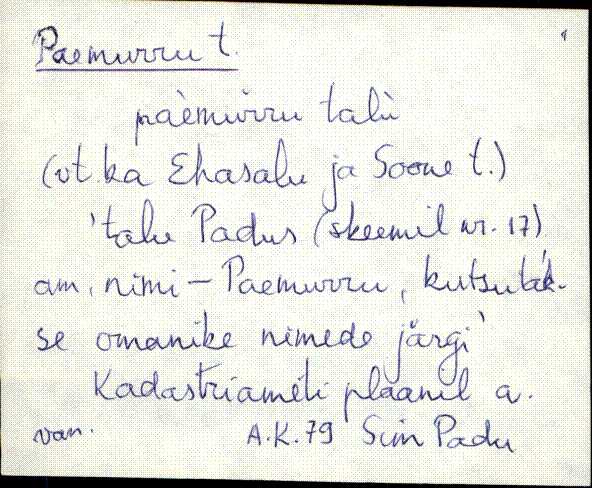 Paemurru t.
pàèmùrru talù
(vt. ka Ehasalu ja Soone t.)
'talu Padus (skeemil nr. 17)
am. nimi – Paemurru, kutsutak-
se omanike nimede järgi'
Kadastriameti plaanil a.
van. A.K. 79 Siim Padu